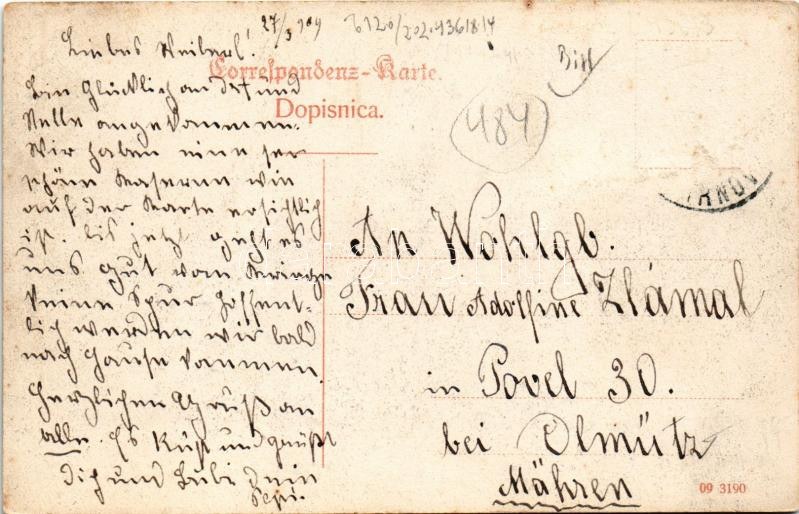 27/3 909
Liebes Weiberl!
Correspondenz-Karte.
Dopisnica.
Bin Glücklich an Ort und
Stelle angekommen.
Wir haben eine ser
schöne Kaserne wie
auf der Karte ersichtlich
ist. bis jetzt geht es
uns gut vom Kriege
keine Spur hoffent-
lich werden wir bald
nach Hause kommen.
Herzlichen Gruß an
alle. Es Küst und grüßt
dich und Bubi dein
Pepi.
484
RNOV
An Wohlgb.
Frau Adolfine Zlámal
in Povel 30.
bei Olmütz
Mähren
09 3190